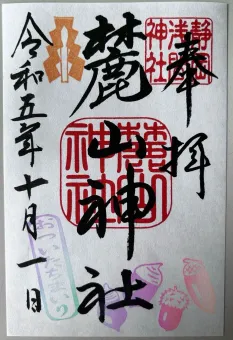 奉拝
静岡浅間神社
麓山神社
麓山神社
令和五年十月一日
おついたちまいり